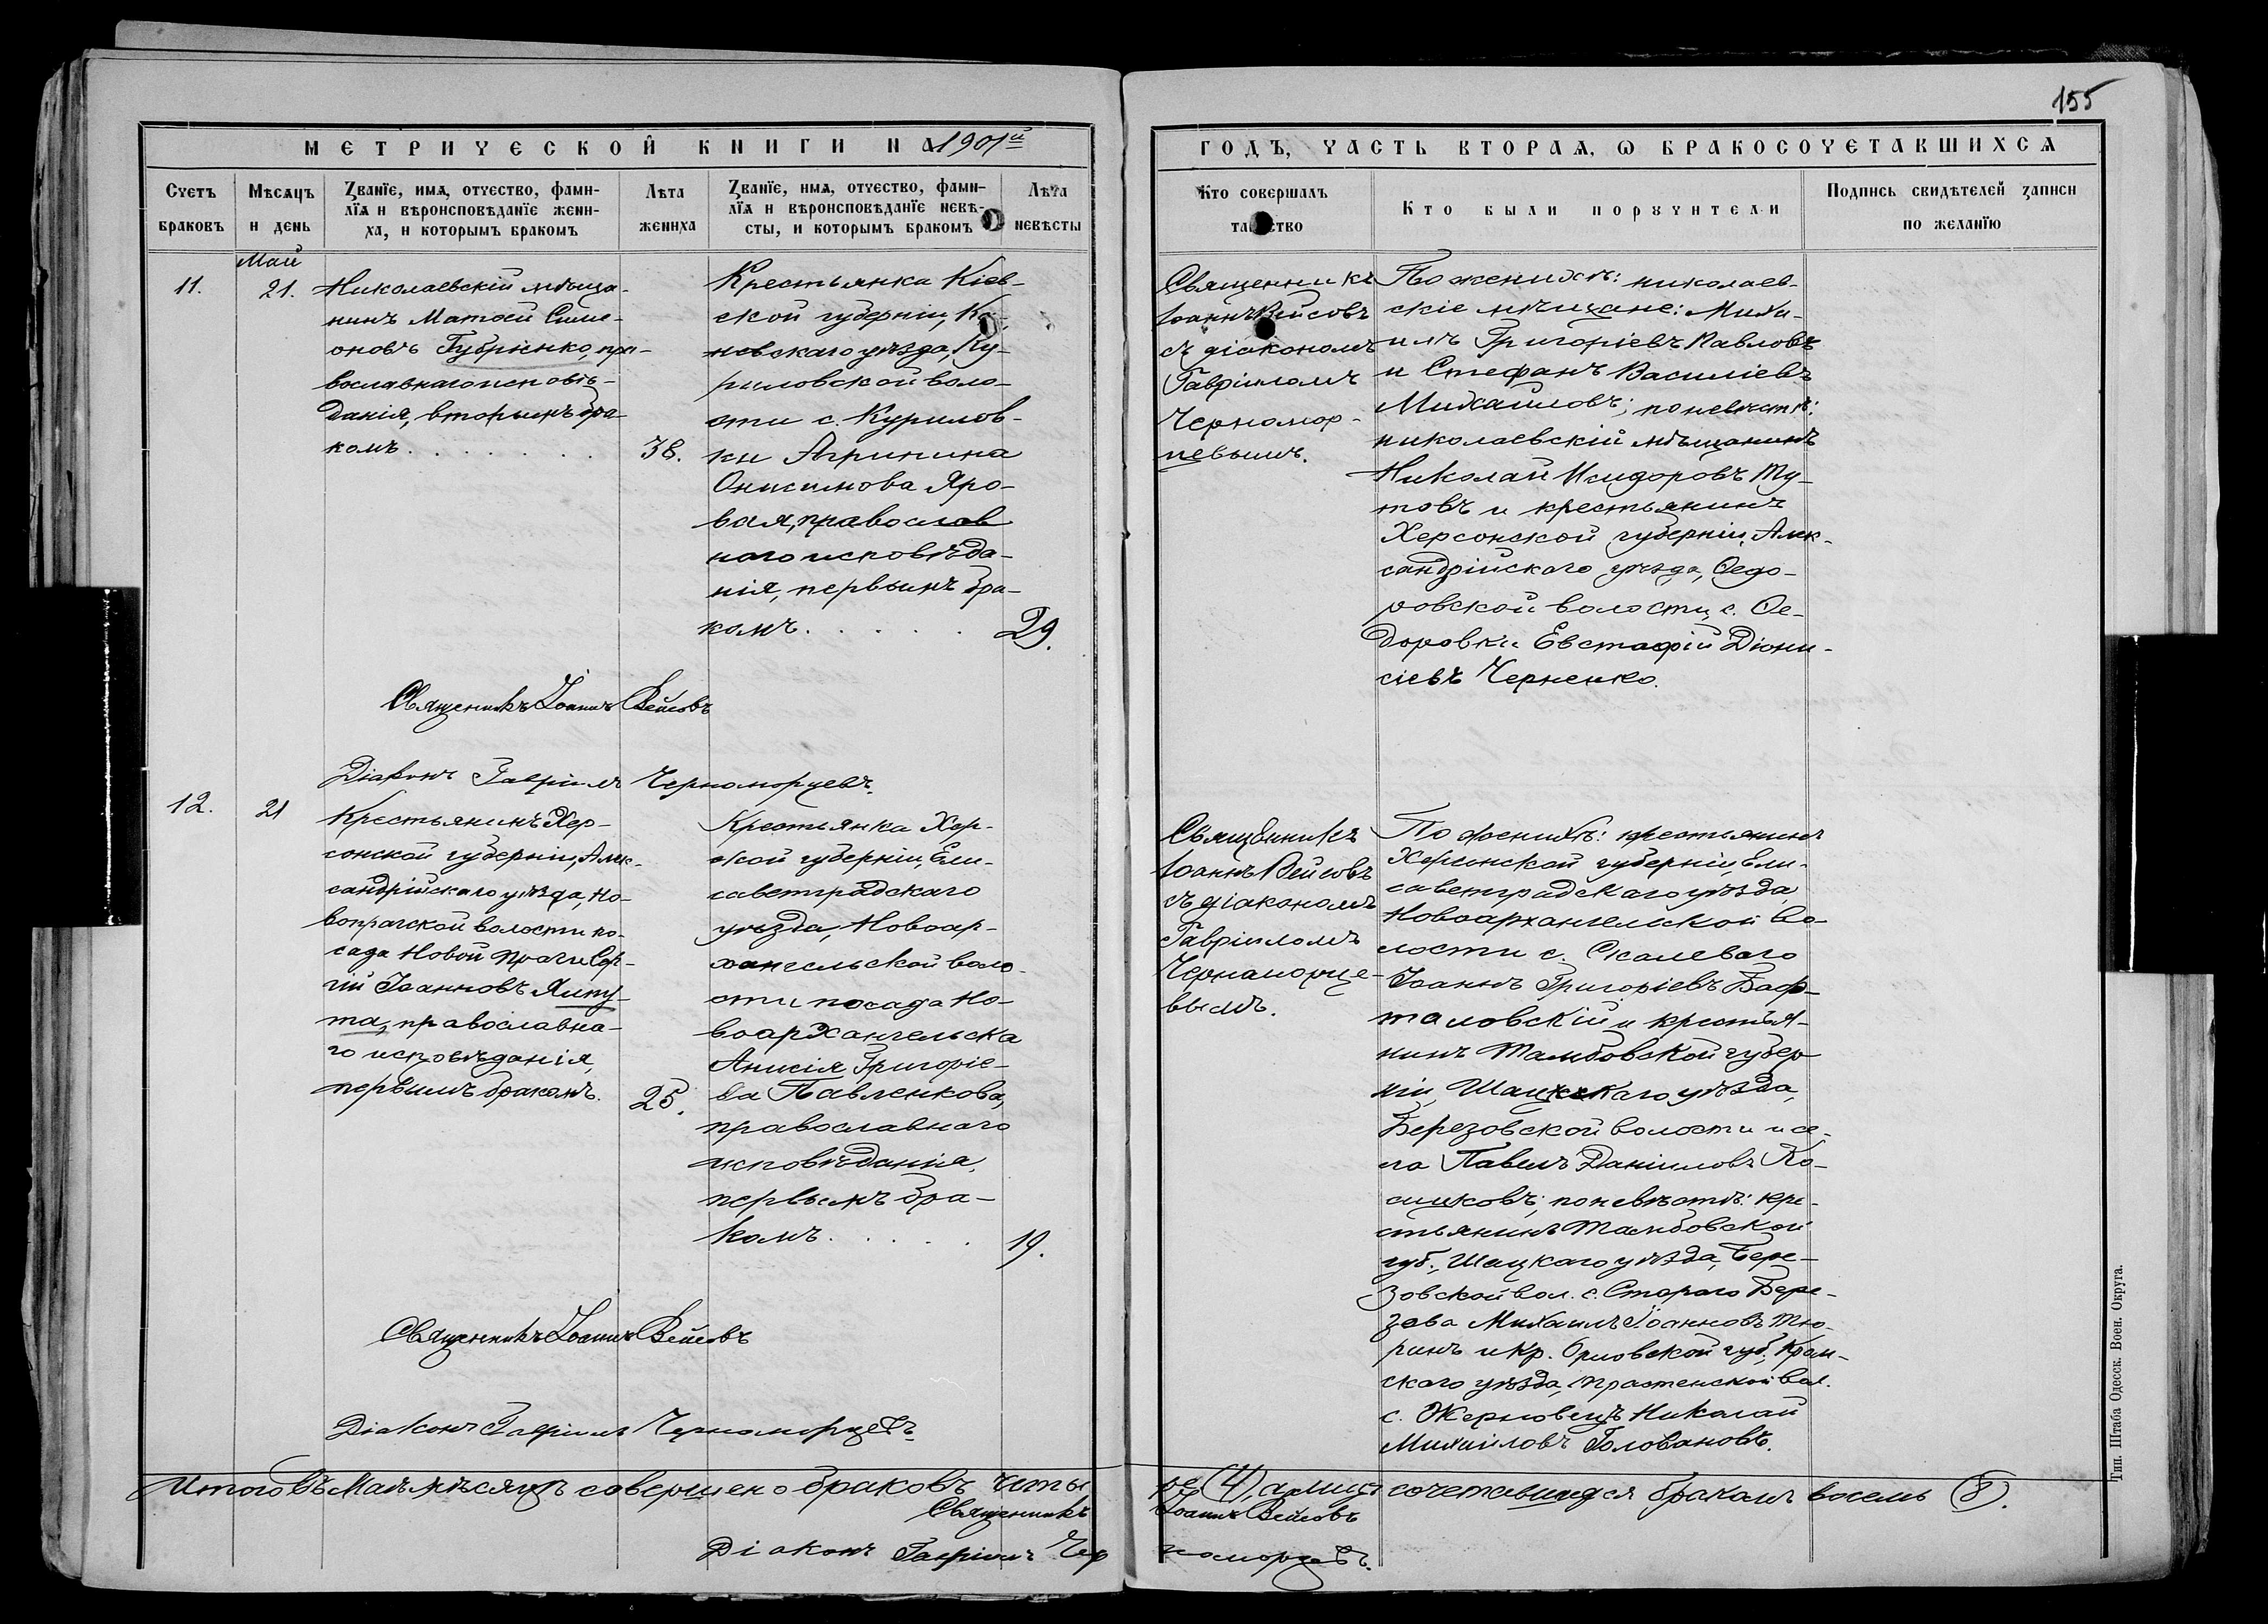 155
МЕТРИЧЕСКОЙ КНИГИ НА 1901й
ГОДЪ, ЧАСТЬ ВТОРАѦ, Ѡ БРАКОСОЧЕТАВШИХСѦ
Счетъ браковъ
Мѣсѧцъ и день
Званїе, имѧ, отчество, фами-
лїѧ и вѣроисповѣданїе жени-
ха, и которымъ бракомъ
Лѣта жениха
Званїе, имѧ, отчество, фами-
лїѧ и вѣроисповѣданїе невѣ-
сты, и которымъ бракомъ
Лѣта невѣсты
Кто совершалъ
таинство
Кто были поручители
Подпись свидѣтелей записи
по желанїю
11.
Май
21.
Николаевскій мѣща-
нинъ Матѳей Симе-
оновъ Губріенко, пра-
вославнаго исповѣ-
данія, вторымъ бра-
комъ . . . . . . .
38.
Крестьянка Кіев-
ской губерніи, Ка-
невскаго уѣзда, Ку-
риловской воло-
сти с. Курилов-
ки Агрипина
Онисимова Яро-
вая, православ
наго исповѣда-
нія, первымъ бра-
комъ . . . . .
29.
Священникъ
Іоаннъ Вейсовъ
съ діакономъ
Гавріиломъ
Черномор-
цевымъ.
По женихѣ: николаев-
скіе мѣщане: Миха-
илъ Григоріевъ Павловъ
и Стефанъ Василіевъ
Михайловъ; по невѣстѣ:
николаевскій мѣщанинъ
Николай Исидоровъ Ту-
товъ и крестьянинъ
Херсонской губерніи, Алек-
сандрійскаго уѣзда, Ѳедо-
ровской волости, с. Ѳе-
доровки Евстафій Діони-
сіевъ Черненко.
Священникъ Іоаннъ Вейсовъ
Діаконъ Гавріилъ Черноморцевъ.
12.
21
Крестьянинъ Хер-
сонской губерніи, Алек-
сандрійскаго уѣзда, Но-
вопрагской волости по-
сада Новой Праги Сер-
гій Іоанновъ Ялпу-
та, православна-
го исповѣданія,
первымъ бракомъ.
25.
Крестьянка Хер-
ской губерніи, Ели-
саветградскаго
уѣзда, Новоар-
хангельской воло-
сти посада Но-
воархангельска
Анисія Григоріе-
ва Павленкова,
православнаго
исповѣданія,
первымъ бра-
комъ . . . . .
19.
Священникъ
Іоаннъ Вейсовъ
съ діакономъ
Гавріиломъ
Черноморце-
вымъ.
По женихѣ: крестьянинъ
Херсонской губерніи, Ели-
саветградскаго уѣзда,
Новоархангельской во-
лости с. Скалеваго
Іоаннъ Григоріевъ Баф-
таловскій и крестья-
нинъ Тамбовской губер
ніи, Шацкаго уѣзда,
Березовской волости и се-
ла Павелъ Даніиловъ Ко-
сицковъ; по невѣстѣ: кре-
стьянинъ Тамбовской
губ., Шацкаго уѣзда, Бере-
зовской вол. с. Стараго Бере-
зова Михаилъ Іоанновъ Тю-
ринъ и кр. Орловской губ., Кром-
скаго уѣзда, вол.
с. Жерновецъ Николай
Михаиловъ Головановъ.
Священникъ Іоаннъ Вейсовъ
Діаконъ Гавріилъ Черноморцевъ.
Итого въ Маѣ мѣсяцѣ совершено браковъ четы
ре (4), а лицъ сочетавшихся бракомъ восемь (8).
Священникъ Іоаннъ Вейсовъ
Діаконъ Гавріилъ Чер
номорцевъ.
Тип. Штаба Одесск. Воен. Округа.